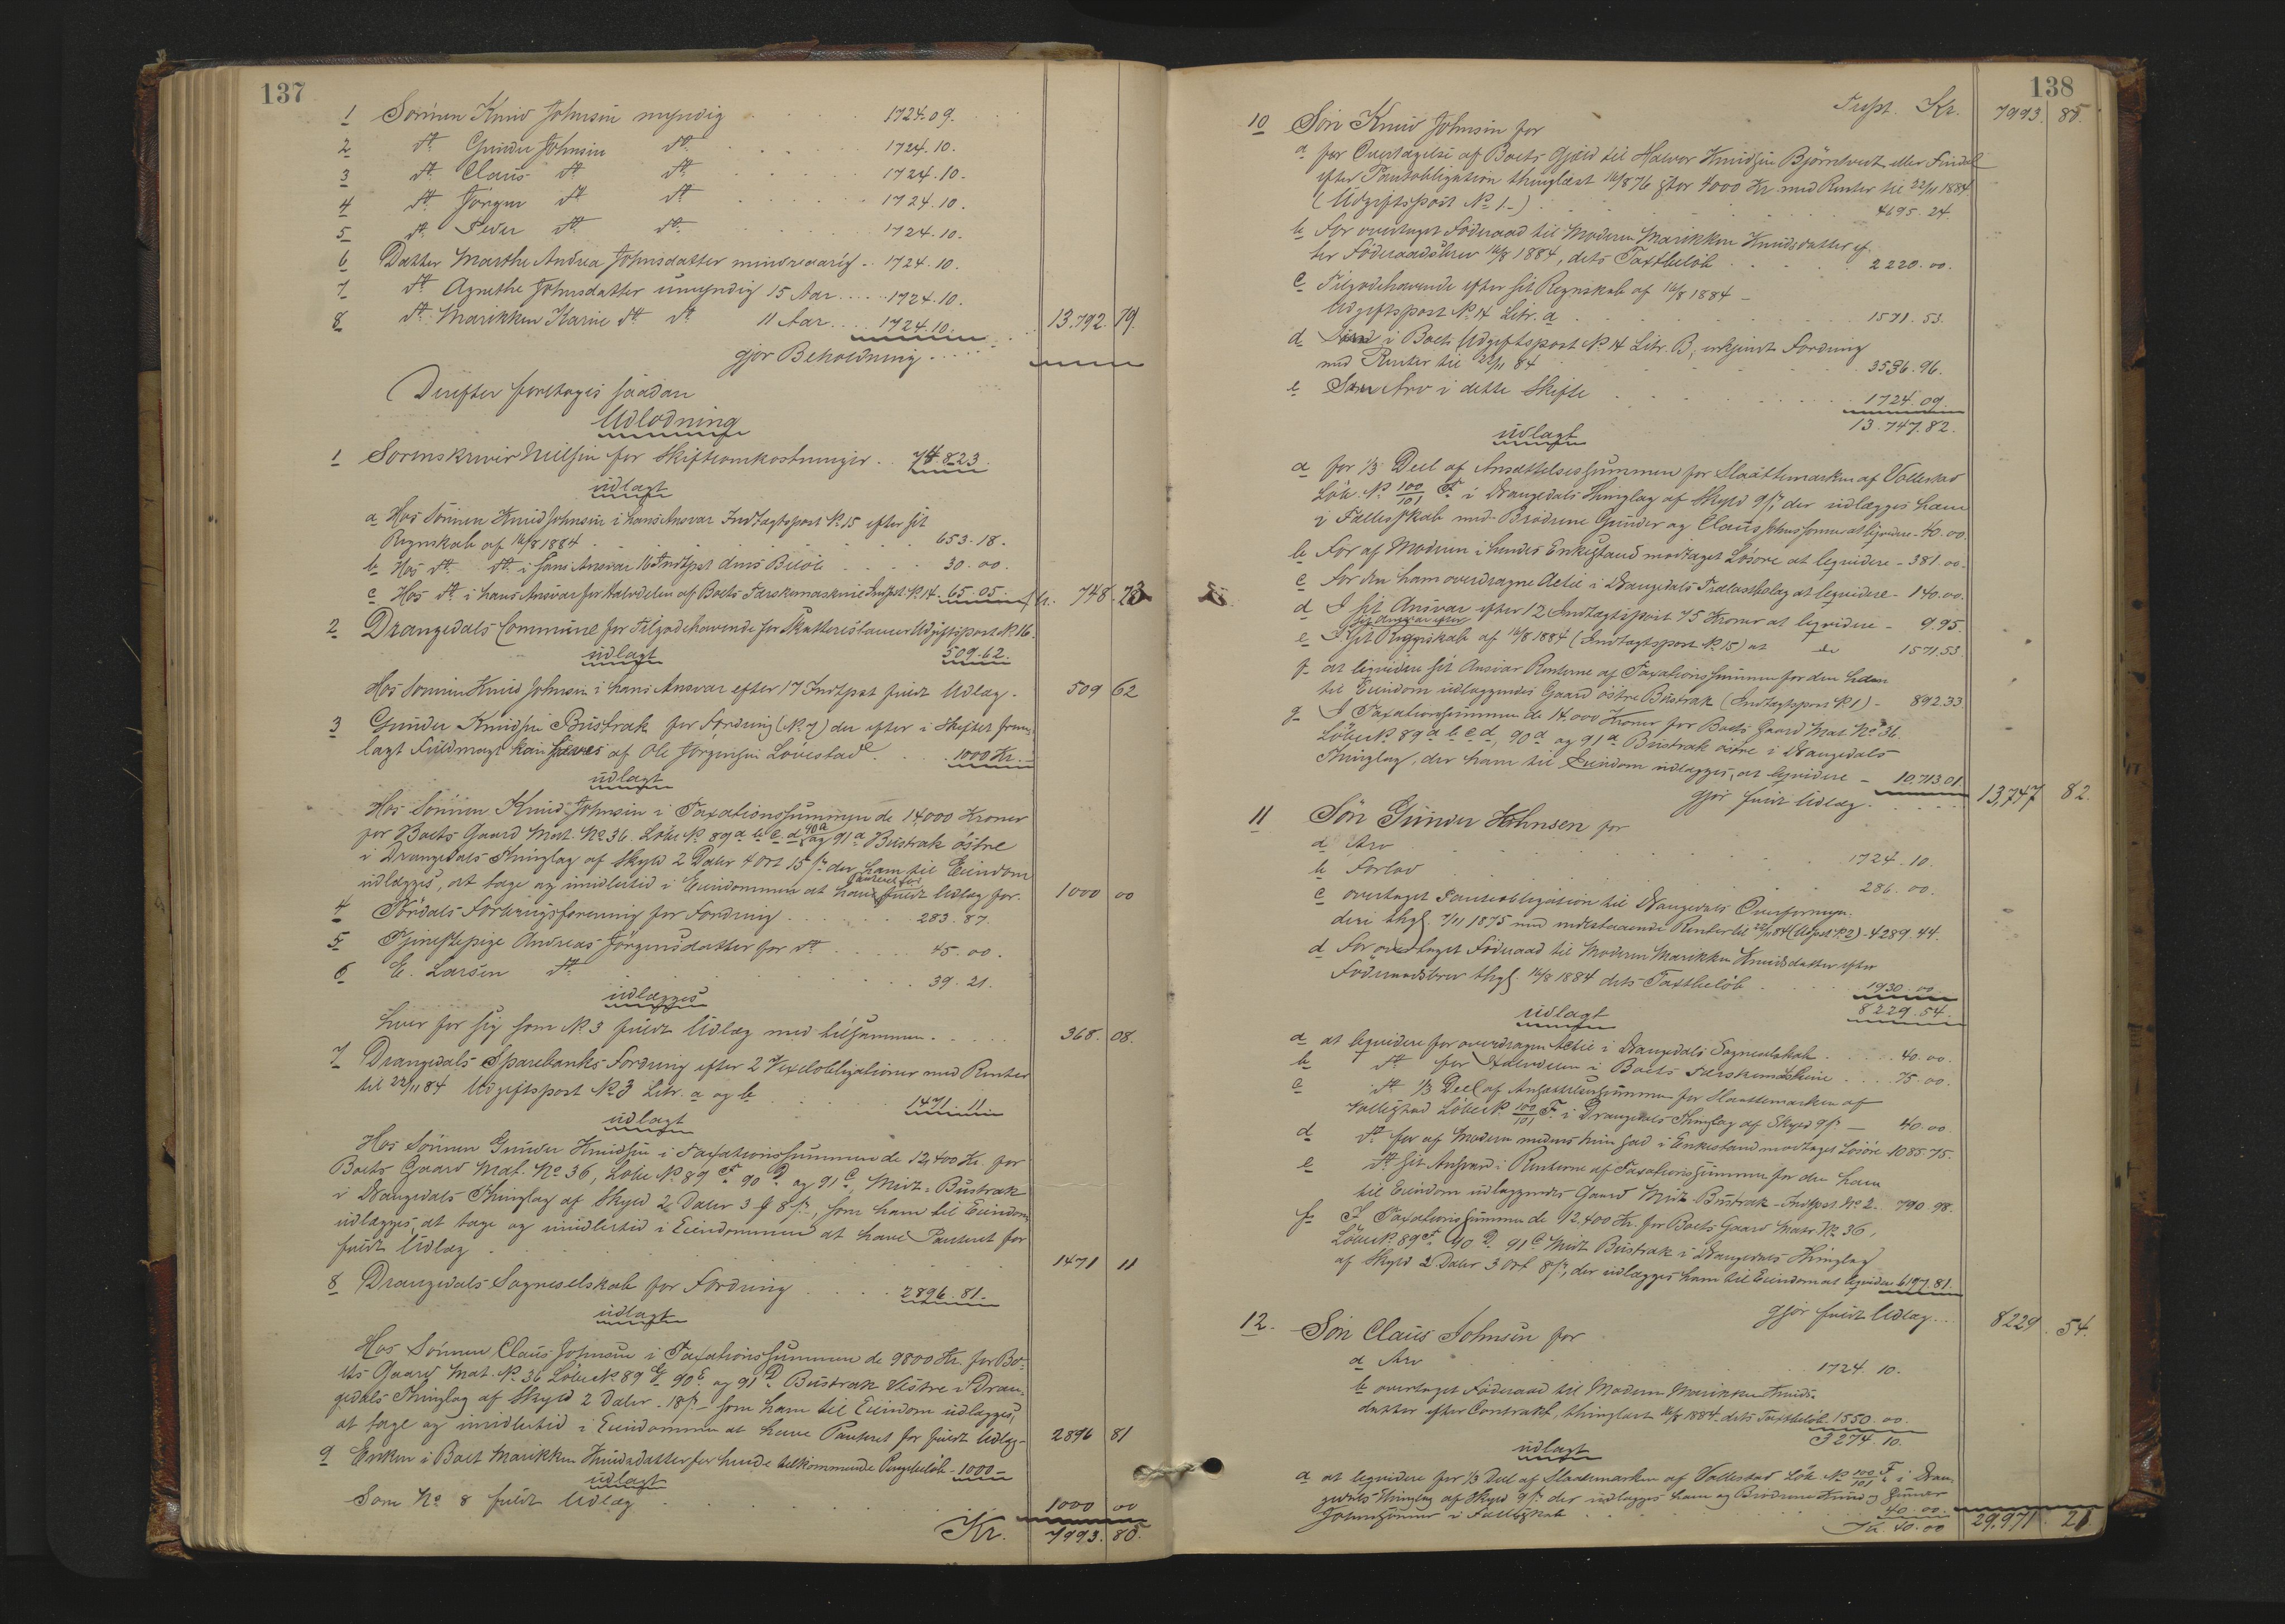 137
1 Sønnen Knud Johnsen myndig 1724.09.
2 dº Gunder Johnsen dº 1724.10.
3 dº Claus dº dº 1724.10.
4 dº Jörgen dº dº 1724.10.
5 dº Peder dº dº 1724.10.
6 Datter Marthe Andrea Johnsdatter mindreaarig 1724.10.
7 dº Agnethe Johnsdatter umyndig 15 Aar 1724.10.
8 dº Marikken Karine dº dº 11 Aar 1724.10.
gjør Beholdning 13.792. 79.
Derefter foretoges saadan
Udlodning
1 Sorenskriver Nielsen for Skifteomkostninger 748.23.
udlagt
a Hos Sønnen Knud Johnsen i hans Ansvar Indtægtspost Nº 15 efter sit
Regnskab af 16/8 1884 653.18.
b Hos dº dº i hans Ansvar 16 Indtpst dens Beløb 30.00.
c Hos dº i hans Ansvar for Halvdelen af Boets Tærskemaskine Indtpst Nº 14. 65.05. Kr. 748. 23
2 Drangedals Commune for Tilgodehavende for Skatterestancer Udgiftspost Nº 16.
udlagt 509.62.
Hos Sønnen Knud Johnsen i hans Ansvar efter 17 Indtpst fuldt Udlæg. 509 62
3 Gunder Knudsen Bustrak for Fordring (Nº 7) der efter i Skiftet frem-
lagt Fuldmagt kan hæves af Ole Jørgensen Løvestad 1000 Kr.
udlagt
Hos Sønnen Knud Johnsen i Taxationssummen de 14,000 Kroner
for Boets Gaard Mat. Nº 36 Løbe Nº 89 a b c d 90a og 91a Bustrak østre
i Drangedals Thinglag af Skyld 2 Daler 4 Ort 15 ſ der ham til Eiendom
udlægges, at tage og imidlertid i Eiendommen at have Panteret for fuldt Udlæg for. 1000 00
4 Tørdals Forbrugsforening for Fordring 283.87.
5 Tjenestepige Andreas Jørgensdatter for dº 45.00.
6 E. Larsen dº 39.21.
udlægges
hver for sig som Nº 3 fuldt Udlæg med tilsammen 368. 08.
7 Drangedals Sparebanks Fordring efter 2 Vexelobligationer med Renter
til 22/11 84 Udgiftspost Nº 3 Litr. a og b 1471.11
udlagt
Hos Sønnen Gunder Knudsen i Taxationssummen de 12,400 Kr. for
Boets Gaard Mat. Nº 36, Løbe Nº 89 F 90 D og 91 C Midt-Bustrak
i Drangedals Thinglag af Skyld 2 Daler 3 Ort 8 ſ, som ham til Eiendom
udlægges, at tage og imidlertid i Eiendommen at have Panteret for
fuldt Udlæg 1471 11
8 Drangedals Sogneselskab for Fordring 2896.81.
udlagt
Hos Sønnen Claus Johnsen i Taxationssummen de 9800 Kr. for Bo-
ets Gaard Mat. Nº 36 Løbe Nº 89 G 90 E og 91 D Bustrak Vestre i Dran-
gedals Thinglag af Skyld 2 Daler - 18 ſ - som ham til Eiendom udlægges,
at tage og imidlertid i Eiendommen at have Panteret for fuldt Udlæg- 2896 81
9 Enken i Boet Marikken Knudsdatter for hende tilkommende Pengebeløb - 1000 -
udlagt
Som Nº 8 fuldt Udlæg 1000 00
Kr. 7993. 85.
138
Trspt. Kr. 7993. 85.
10 Søn Knud Johnsen for
a for Overtagelse af Boets Gjæld til Halvor Knudsen Bjørntvet eller Findal
efter Pantobligation thinglæst 16/8 76 stor 4000 Kr. med Renter til 22/11 1884
(Udgiftspost Nº 1-) 4695.24.
b For overtaget Føderaad til Moderen Marikken Knudsdatter ef-
ter Føderaadsbrev 16/8 1884, dets Taxtbeløb 2220.00.
c Tilgodehavende efter sit Regnskab af 16/8 1884 -
Udgiftspost Nº 14 Litr. a 1571.53.
d i Boets Udgiftspost Nº 14 Litr. B, erkjendt Fordring
med Renter til 22/11 84 3536.96.
e Som Arv i dette Skifte 1724.09.
13.747.82.
udlagt
a for 1/3 Deel af Ansættelsessummen for Slaattemarken af Vollestad
Løb. Nº 100/101 F i Drangedals Thinglag af Skyld 9 ſ, der udlægges ham
i Fællesskab med Brødrene Gunder og Claus Johnssønner at liqvidere - 40.00.
b For af Moderen i hendes Enkestand modtaget Løsøre at liqvidere - 381.00.
c For den ham overdragne Actie i Drangedals at liqvidere - 140.00.
d I sit Ansvar efter 12 Indtægtspost 75 Kroner at liqvidere - 9.95.
e I sit Ansvar efter Regnskab af 16/8 1884 (Indtægtspost Nº 15) at do 1571.53.
f at liqvidere sit Ansvar Renterne af Taxationssummen for den ham
til Eiendom udlæggendes Gaard østre Bustrak (Indtægtspost Nº 1) - 892.33.
g I Taxationssummen de 14,000 Kroner for Boets Gaard Mat. Nº 36.
Løbe Nº 89 a b c d, 90 a og 91 a Bustrak østre i Drangedals
Thinglag, der ham til Eiendom udlægges, at liqvidere - 10,713.01.
gjør fuldt Udlæg. 13,747 82.
11 Søn Gunder Johnsen for
a Arv 1724.10.
b Forlov 286.00.
c overtaget Panteobligation til Drangedals Overformyn-
deri thgl. 7/11 1875 med indestaaende Renter til 22/11 84 (Udpost Nº 2) - 4289.44.
d For overtaget Føderaad til Moderen Marikken Knudsdatter efter
Føderaadsbrev thgl. 16/8 1884 dets Taxtbeløb 1930.00.
8229.54.
udlagt
a at liqvidere for overdragen Actie i Drangedals Sogneselskab 40.00.
b dº for Halvdelen i Boets Tærskemaskine 75.00.
c dº 1/3 Deel af Ansættelsessummen for Slaattemarken af
Vollestad Løbe Nº 100/101 F. i Drangedals Thinglag af Skyld 9 ſ - 40.00.
d dº for af Moderen medens hun sad i Enkestand modtaget Løsøre 1085.75.
e dº sit Ansvar i Renterne af Taxationssummen for den ham
til Eiendom udlæggendes Gaard Midt-Bustrak - Indtpst Nº 2. 790.98.
f I Taxationssummen de 12,400 Kr. for Boets Gaard Matr. Nº 36,
Løbe Nº 89 F. 90 D. 91 C. Midt Bustrak i Drangedals Thinglag
af Skyld 2 Daler 3 Ort 8 ſ, der udlægges ham til Eiendom at liqvidere 6197.81.
gjør fuldt Udlæg 8229. 54.
12. Søn Claus Johnsen for
a Arv 1724.10.
b overtaget Føderaad til Moderen Marikken Knuds-
datter efter Contrakt, thinglæst 16/8 1884. dets Taxtbeløb 1550.00.
3274.10.
udlagt
a at liqvidere for 1/3 Deel af Slaattemarken af Vollestad Løb. Nº 100/101 F. i Dran-
gedals Thinglag af Skyld 9 ſ der udlægges ham og Brødrene Knud og Gunder
Johnssønner i Fællesskab 40.00.
40.00 29,971. 21